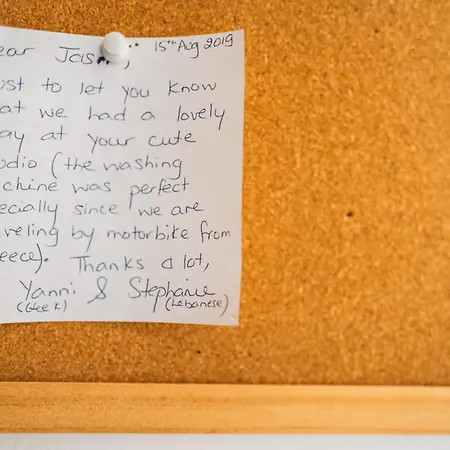 ear Jas , 15th Aug 2019
ust to let you know
at we had a lovely
ay at your cute
udio (the washing
chine was perfect
ecially since we are
veling by motorbike from
eece). Thanks a lot,
Yanni & Stephanie
(Greek) (Lebanese)